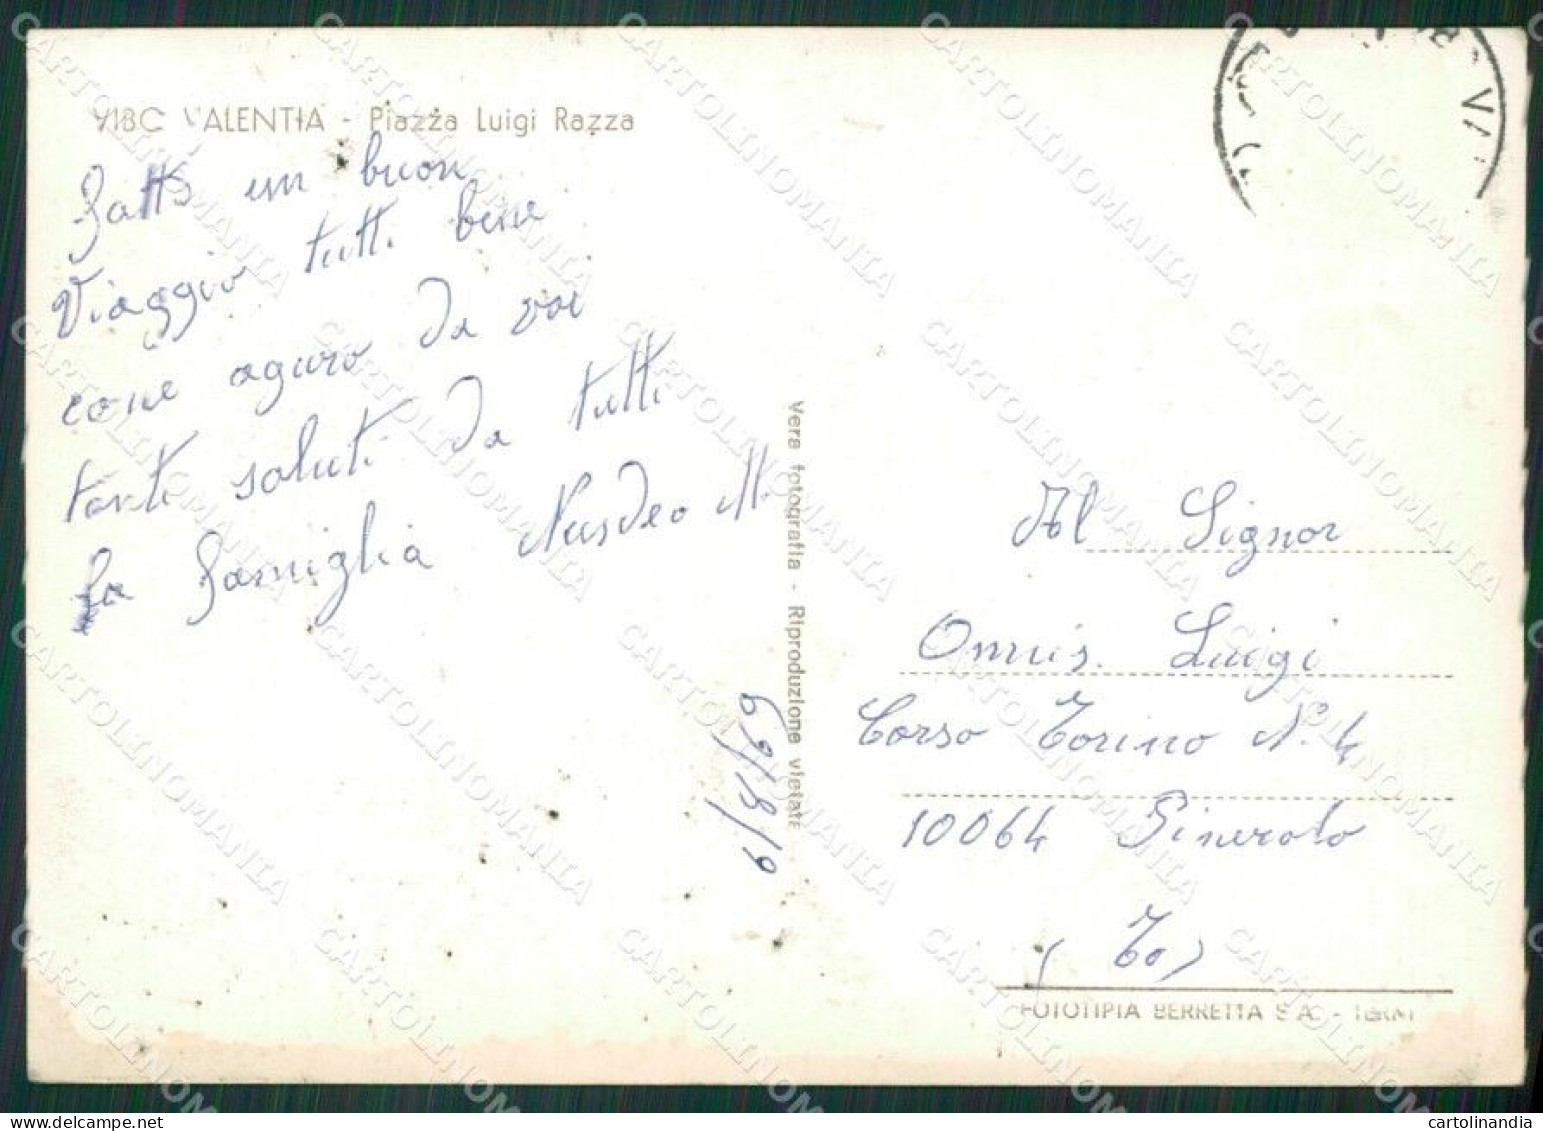 VIBO VALENTIA - Piazza Luigi Razza
fatto un buon
Viaggio tutti bene
cone aguro da voi
tanti saluti da tutti
la famiglia Nasdeo M.
9/8/69
Vera fotografia - Riproduzione vietata
Al Signor
Onnis. Luigi
Corso Torino N. 4
10064 Pinerolo
(To)
FOTOTIPIA BERRETTA S.A. - TERNI
CARTOLINOMANIA
cartolinandia